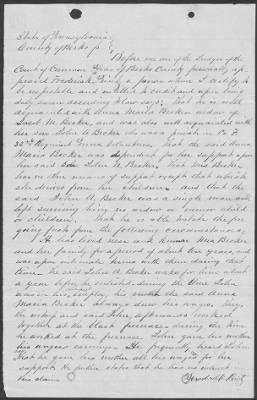 State of Pennsylvania
County of Berks ss
Before me one of the Judges of the
Court of Common Pleas of Berks County personally ap-
peared Frederick a person whom I certify to
be respectable and entitled to credit and who upon being
duly sworn according to law says: That he is well
acquainted with Anna Maria Becker widow of
Jacob M. Becker, and was also well acquainted with
her son John A Becker who was a private in Co
Regiment Penna Volunteers, That the said Anna
Maria Becker was dependent for her support upon
her said son John A. Becker, That Mrs Becker
has no other means of support except that which
she derives from her children and that the
said John A. Becker was a single man, and
left surviving him no widow or minor child
or children, That he is able to state the fore
going facts from the following circumstances;
He has lived near and known Mrs Becker
and her family for a period of about years, and
was upon intimate terms with them during that
time. The said John A. Becker worked for him about
a year before he enlisted. During the time John
was in his employ, his mother the said Anna
Maria Becker always drew his wages. They,
the witness and said John afterwards worked
together at the furnace. during the time
he worked at the furnace John gave his mother
his wages earnings. He frequently heard John
that he gave his mother all his wages for her
support. He further states that he has no interest
in this claim
Frederick